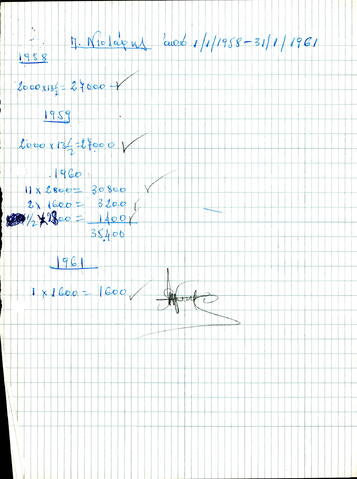 Π. Ντοτάρης από 1/1/1958-31/1/1961
1958
2000 x 13 1/2 = 27000
1959
2000 x 13 1/2 = 27000
1960
11 x 2800 = 30800
2 x 1600 = 3200
1/2 x 2800 = 1400
35.400
1961
1 x 1600 = 1600